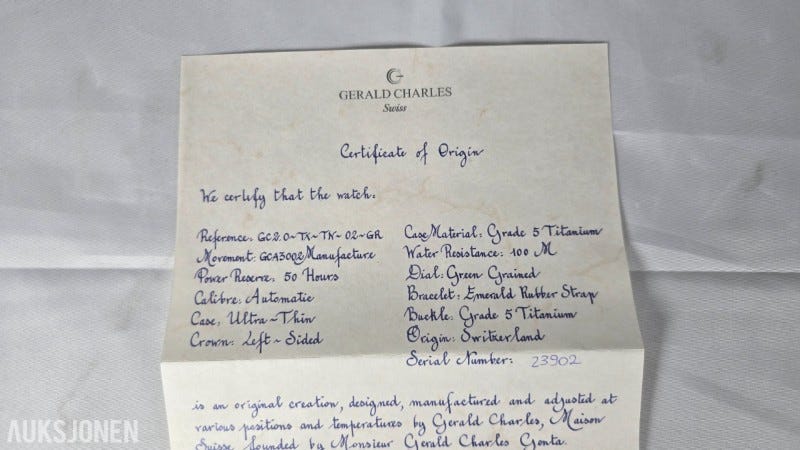 GERALD CHARLES
Swiss
Certificate of Origin
We certify that the watch:
Reference: GC2.0-TX-TN-02-GR
Movement: GCA3002 Manufacture
Power Reserve: 50 Hours
Calibre: Automatic
Case: Ultra-Thin
Crown: Left-Sided
Case Material: Grade 5 Titanium
Water Resistance: 100 M
Dial: Green Grained
Bracelet: Emerald Rubber Strap
Buckle: Grade 5 Titanium
Origin: Switzerland
Serial Number: 23902
is an original creation, designed, manufactured and adjusted at
various positions and temperatures by Gerald Charles, Maison
Suisse founded by Monsieur Gerald Charles Genta.
AUKSJONEN